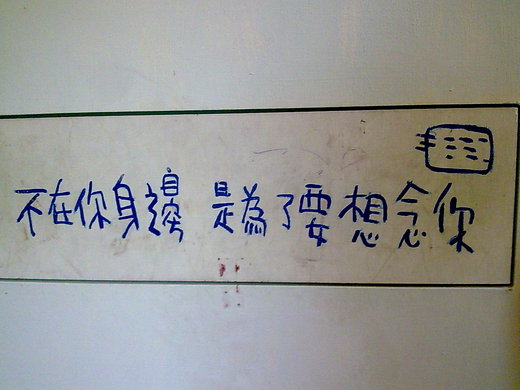 不在你身邊 是為了要想念你